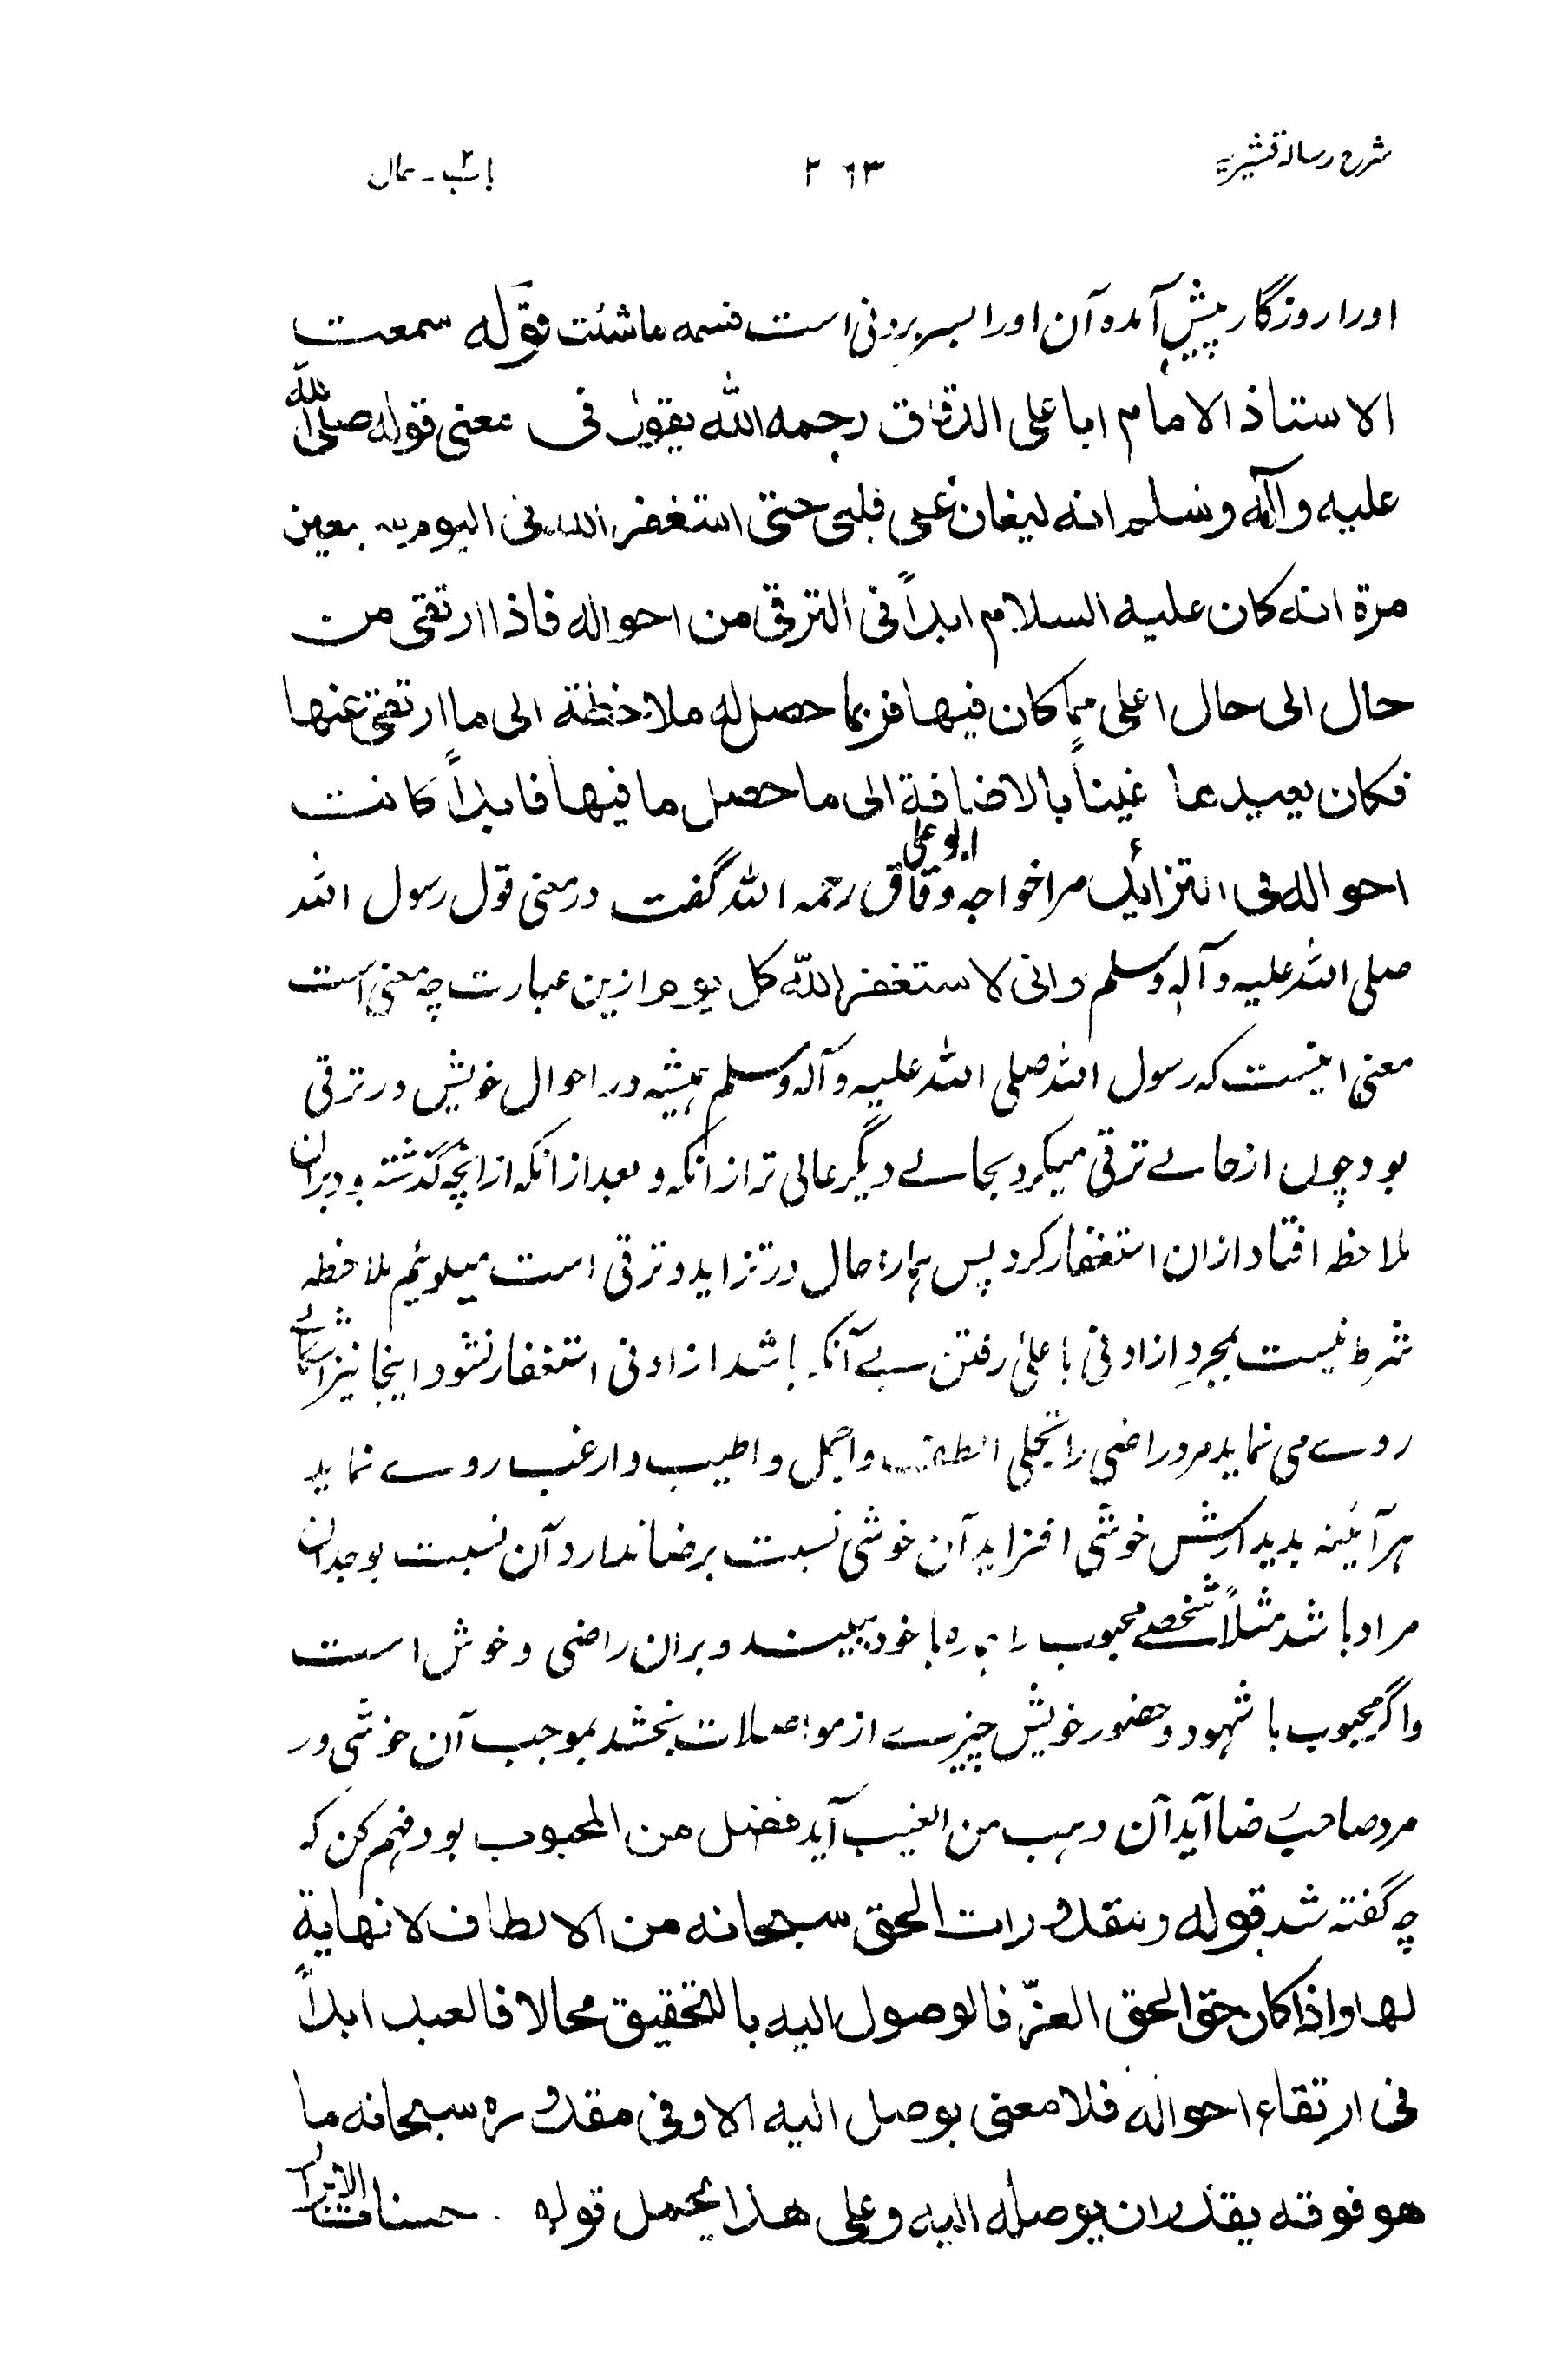 شرح رسالہ قشیریہ ۲۶۳ باب۲ - حال
اورا روزگار پیش آمدہ آن اورا بسر بردنی است فسمہ ماشئت قولہ سمعت
الاستاذ الامام ابا علی الدقاق رحمہ اللہ یقول فی معنی قولہ صلی اللہ
علیہ وآلہ وسلم انہ لیغان علی قلبی حتی استغفر اللہ فی الیوم سبعین
مرۃ انہ کان علیہ السلام ابداً فی الترقی من احوالہ فاذا ارتقی من
حال الی حال اعلی مما کان فیہا فربما حصل لہ ملاحظۃ الی ما ارتقی عنہا
فکان یعیدھا غیناً بالاضافۃ الی ما حصل ما فیہا فابداً کانت
احوالہ فی التزائد مراخواجہ ابو علی دقاق رحمہ اللہ گفت در معنی قول رسول اللہ
صلی اللہ علیہ وآلہ وسلم وانی لاستغفر اللہ کل یوم ازین عبارت چہ معنی است
معنی اینست کہ رسول اللہ صلی اللہ علیہ وآلہ وسلم ہمیشہ در احوال خویش در ترقی
بود چون از حالے ترقی میکرد بحالے دیگر عالی تر از انکہ و بعد از انکہ از انچہ گذشتہ بود بران
ملاحظہ افتاد ازان استغفار کرد پس ہموارہ حال در تزاید و ترقی است میگوئیم ملاحظہ
شرط نیست بمجردِ از ادنی باعلیٰ رفتن بے آنکہ باشد از ادنی استغفار نشود اینجا نیز اشکالے
روے می نماید مرد راضی را تجلی الطف واجمل واطیب وارغب روے نماید
ہرآئینہ بدیدارش خوشی افزاید آن خوشی نسبت برضا ندارد آن نسبت بوجدان
مراد باشد مثلاً شخصے محبوب را ہمارہ با خود ببیند و بران راضی و خوش است
واگر محبوب با شہود و حضور خویش چیزے از مواصلات بخشد بموجب آن خوشی در
مرد صاحب رضا آید آن وہب من الغیب آید فضل من المحبوب بود فہم کن کہ
چہ گفتہ شد قولہ ومقدورات الحق سبحانہ من الالطاف لا نہایۃ
لہا واذا کان حق الحق العزّ فالوصول الیہ بالتحقیق محالا فالعبد ابداً
فی ارتقاء احوالہ فلا معنی یوصل الیہ الا وفی مقدورہ سبحانہ ما
ھو فوقہ یقدر ان یوصلہ الیہ وعلی ھذا یحمل قولہ حسنات الابرار